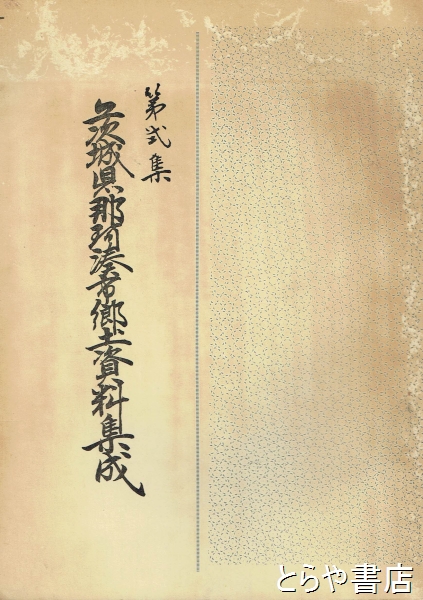 第弐集
茨城県那珂湊市郷土資料集成
とらや書店